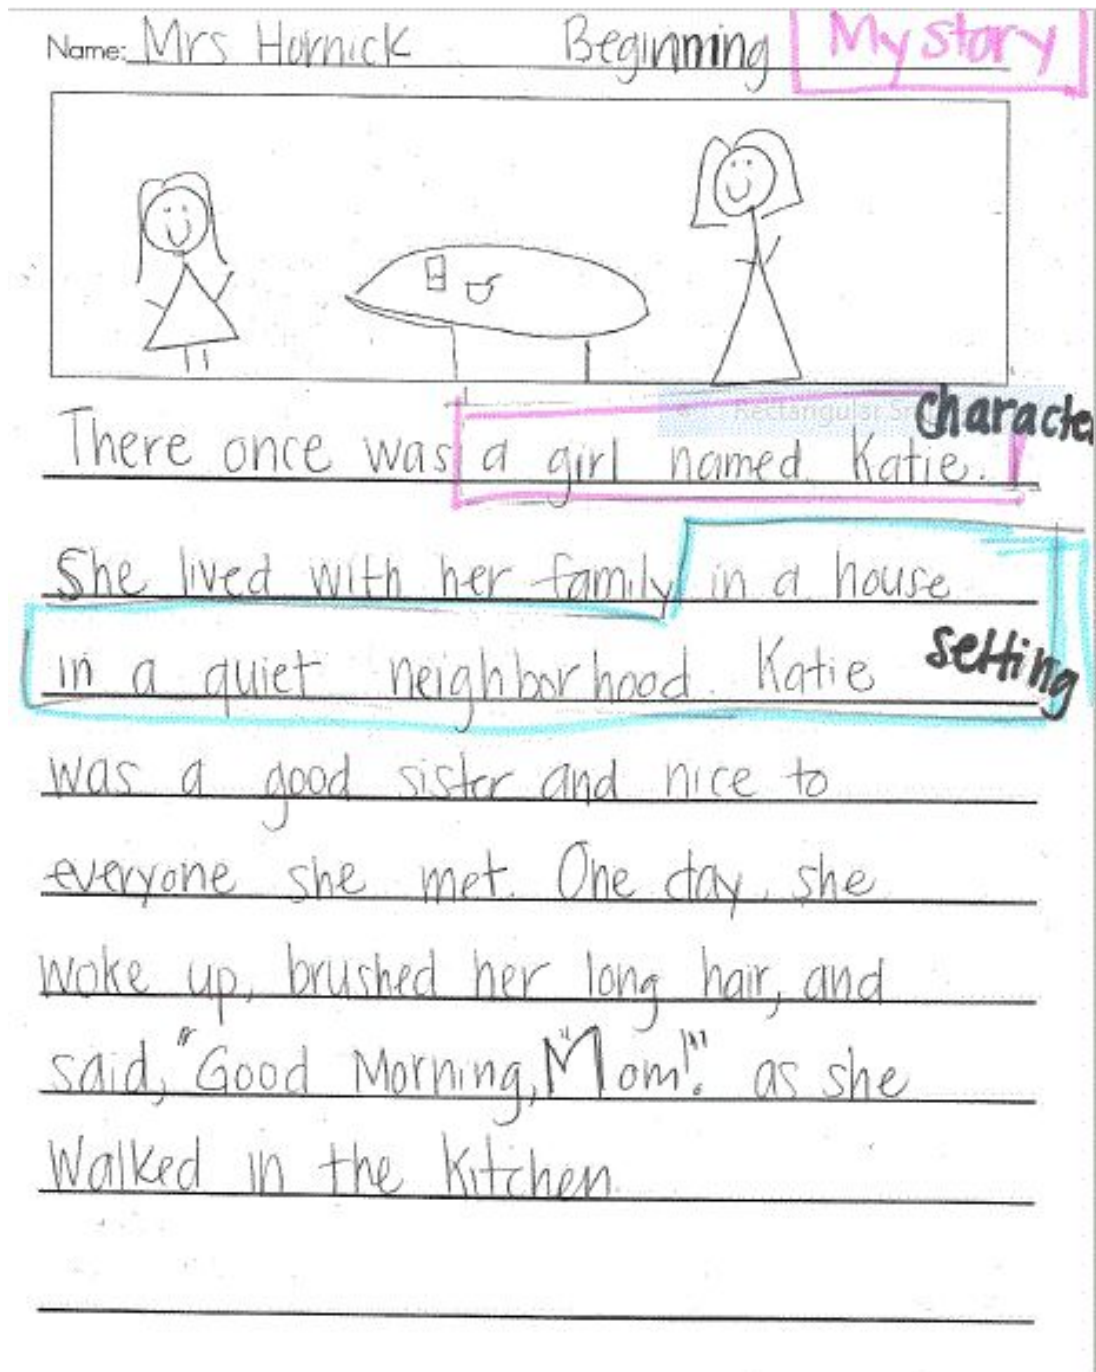 Name: Mrs Hornick Beginning My story
Rectangular Sn
character
There once was a girl named Katie.
She lived with her family in a house
in a quiet neighborhood. Katie setting
was a good sister and nice to
everyone she met. One day, she
woke up, brushed her long hair, and
said, "Good Morning, Mom!" as she
Walked in the Kitchen.